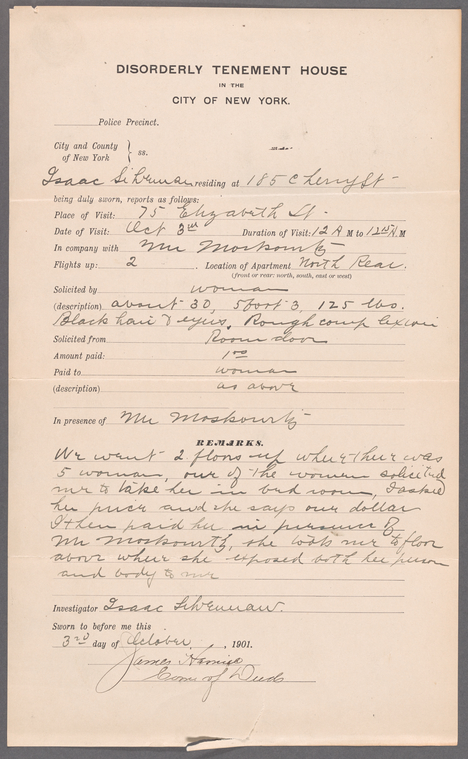 DISORDERLY TENEMENT HOUSE
IN THE
CITY OF NEW YORK.
Police Precinct.
City and County
of New York } ss.
Isaac Silverman residing at 185 Cherry St
being duly sworn, reports as follows:
Place of Visit: 75 Elizabeth St.
Date of Visit: Oct 3rd Duration of Visit: 12 A M to 12 M
In company with Mr Moskowitz
Flights up: 2 Location of Apartment North Rear.
(front or rear: north, south, east or west)
Solicited by woman
(description) about 30, 5 foot 3, 125 lbs.
Black hair & eyes. Rough complexion
Solicited from Room door
Amount paid: 1 00
Paid to woman
(description) as above
In presence of Mr Moskowitz
REMARKS.
We went 2 floors up where there was
5 woman, one of the women solicited
me to take her in bed room, I asked
her price and she says one dollar
I then paid her in presence of
Mr Moskowitz, she took me to floor
above where she exposed both her person
and body to me
Investigator Isaac Silverman.
Sworn to before me this
3rd day of October, 1901.
James
Com of Deeds